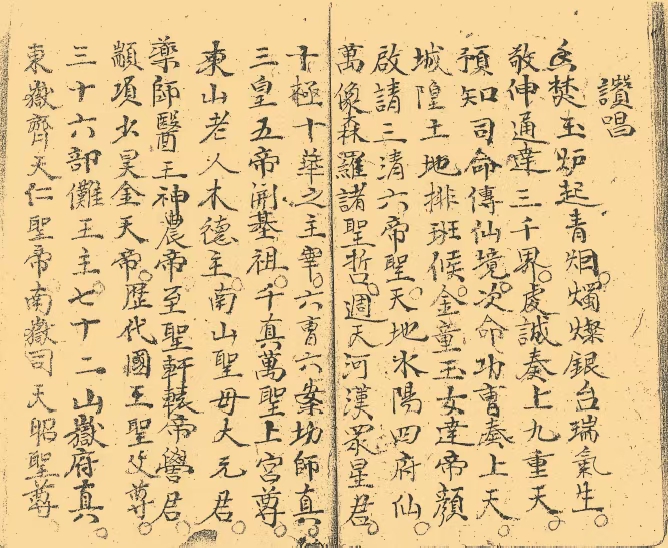 讚唱
焚玉炉起青烟。燭燦銀台瑞氣生。
敬伸通達三千界。虔誠奏上九重天。
預知司命傳仙境。次命功曹奏上天。
城隍土地排班候。金童玉女達帝顏。
啟請三清六帝聖。天地水陽四府仙。
萬像森羅諸聖哲。週天河漢眾星君。
十極十華之主宰。六曹六案功師真。
三皇五帝開基祖。千真萬聖上宮尊。
東山老人木德主。南山聖母大元君。
藥師醫王神農帝。至聖軒轅帝嚳君。
顓項少昊金天帝。歷代國王聖父尊。
三十六部儺王主。七十二山嶽府真。
東嶽齊天仁聖帝。南嶽司天昭聖尊。